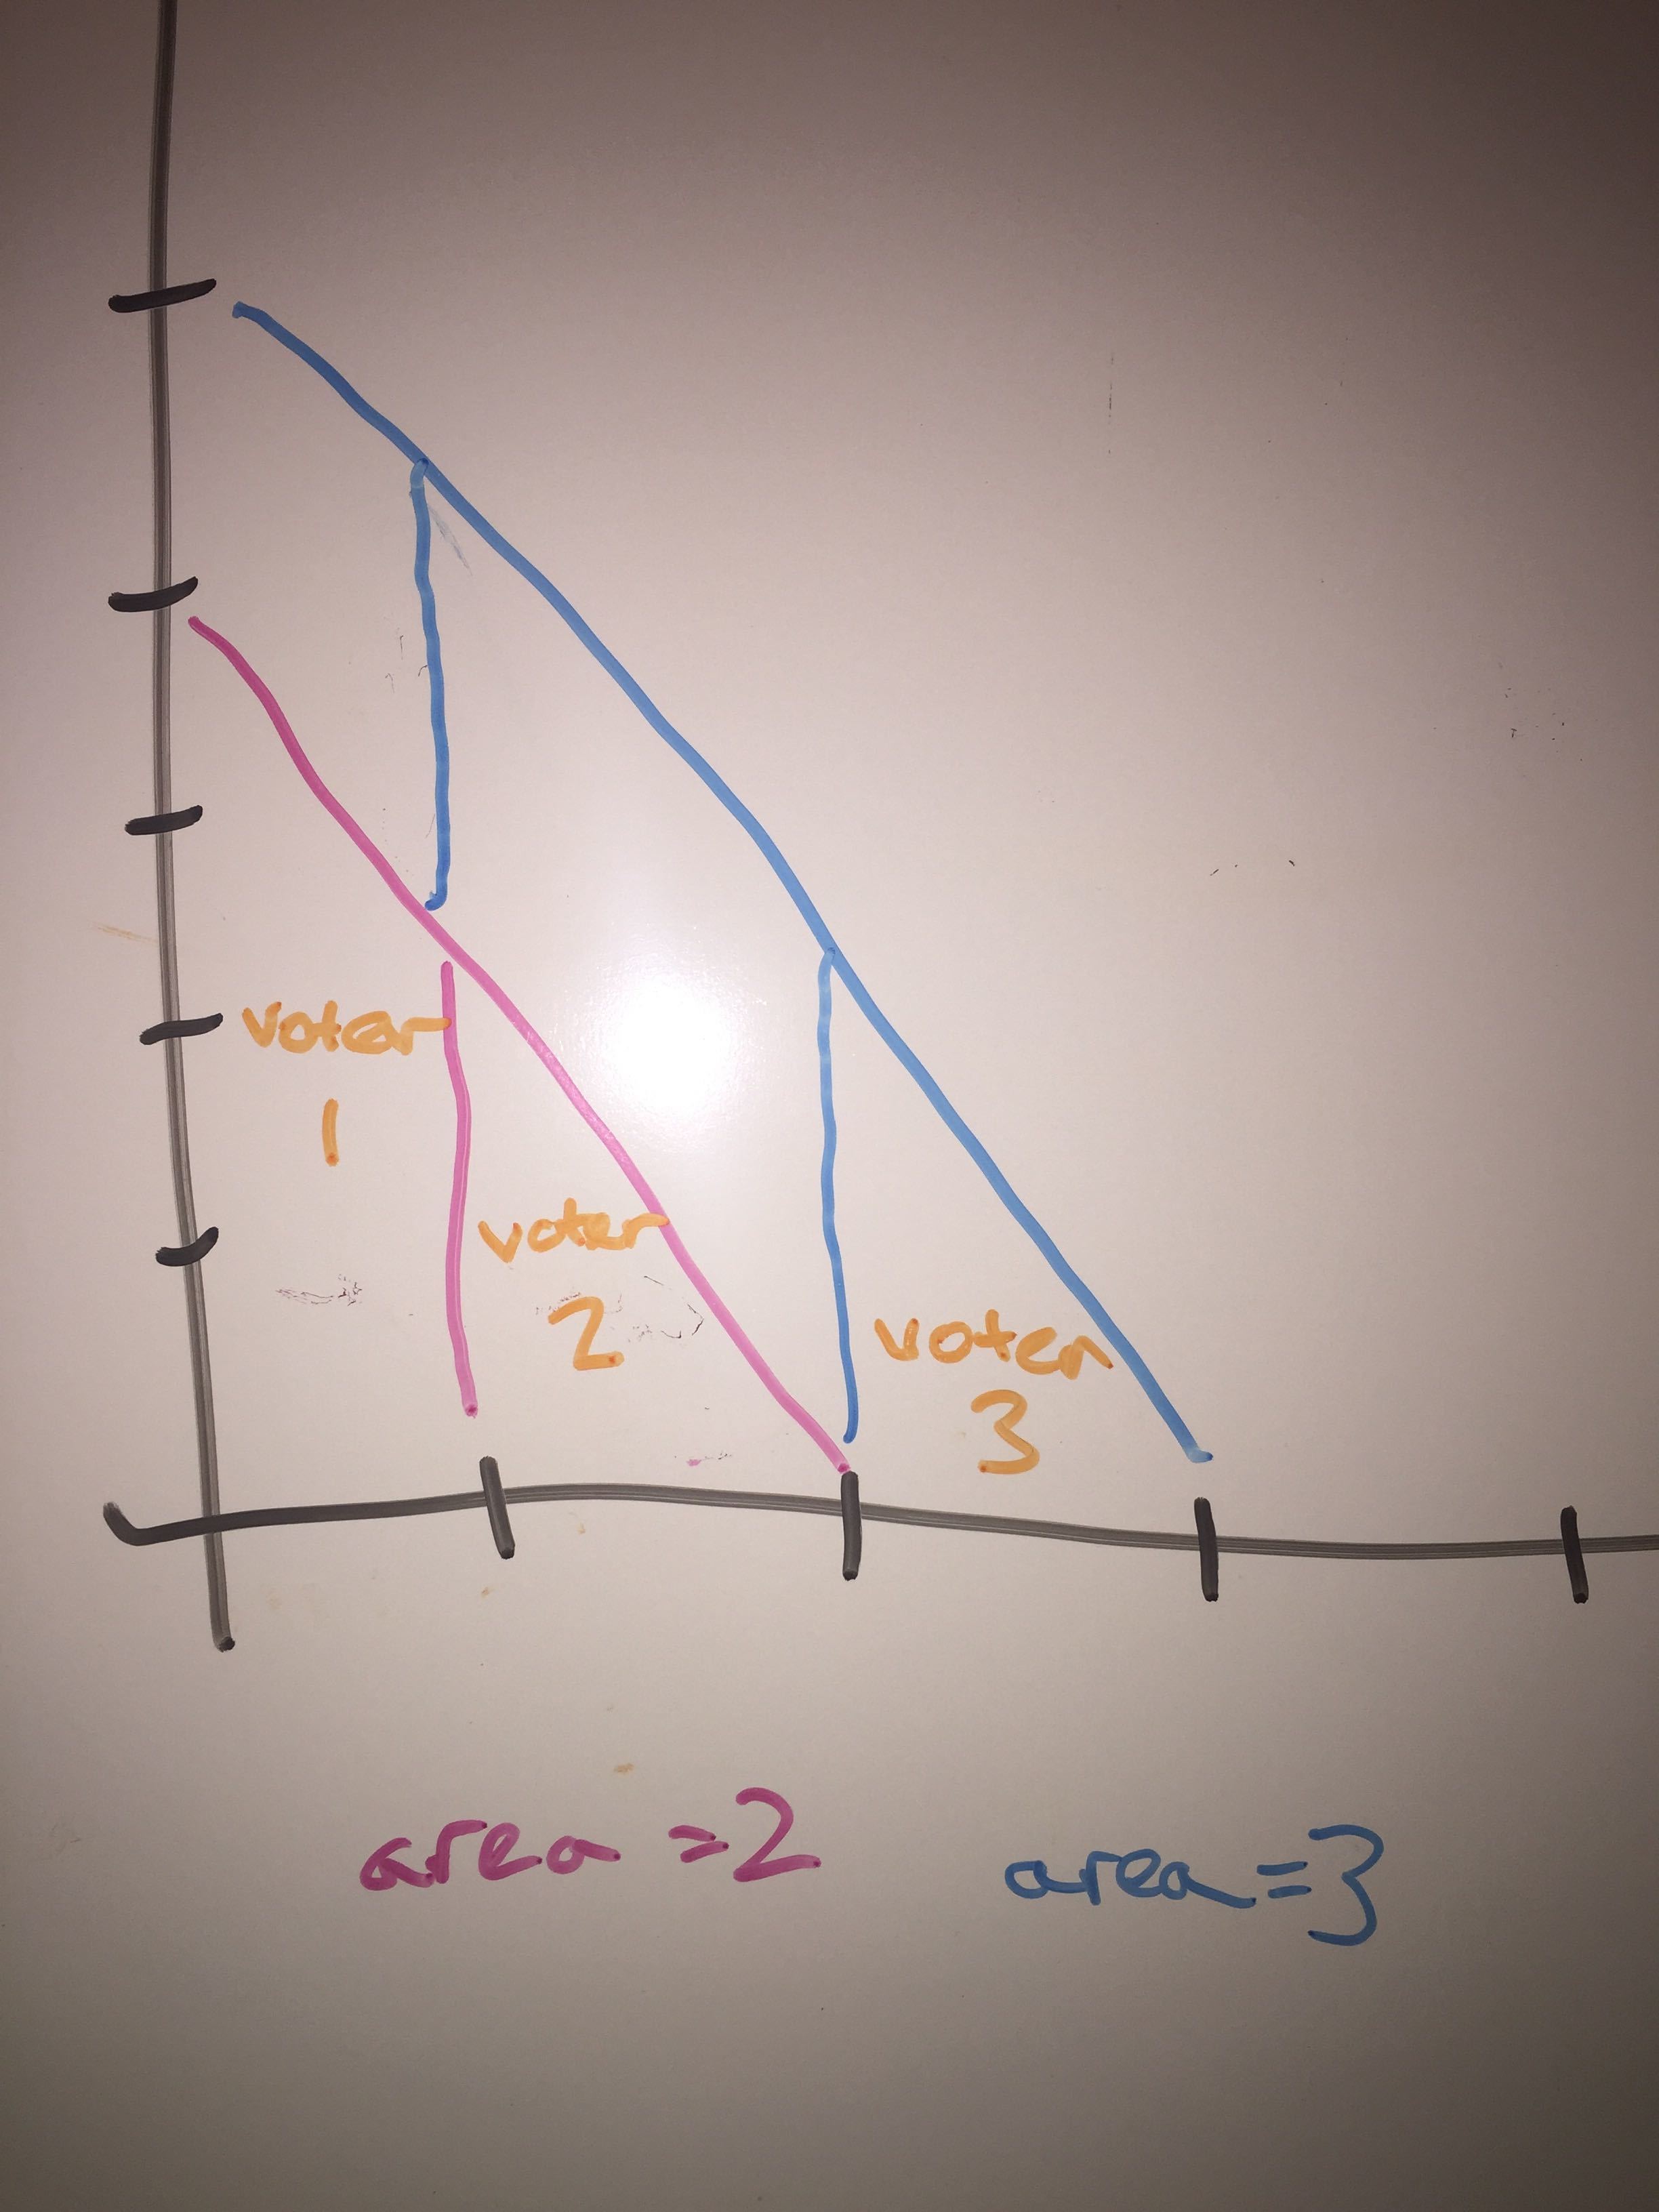 voter
1
voter
2
voter
3
area = 2
area = 3